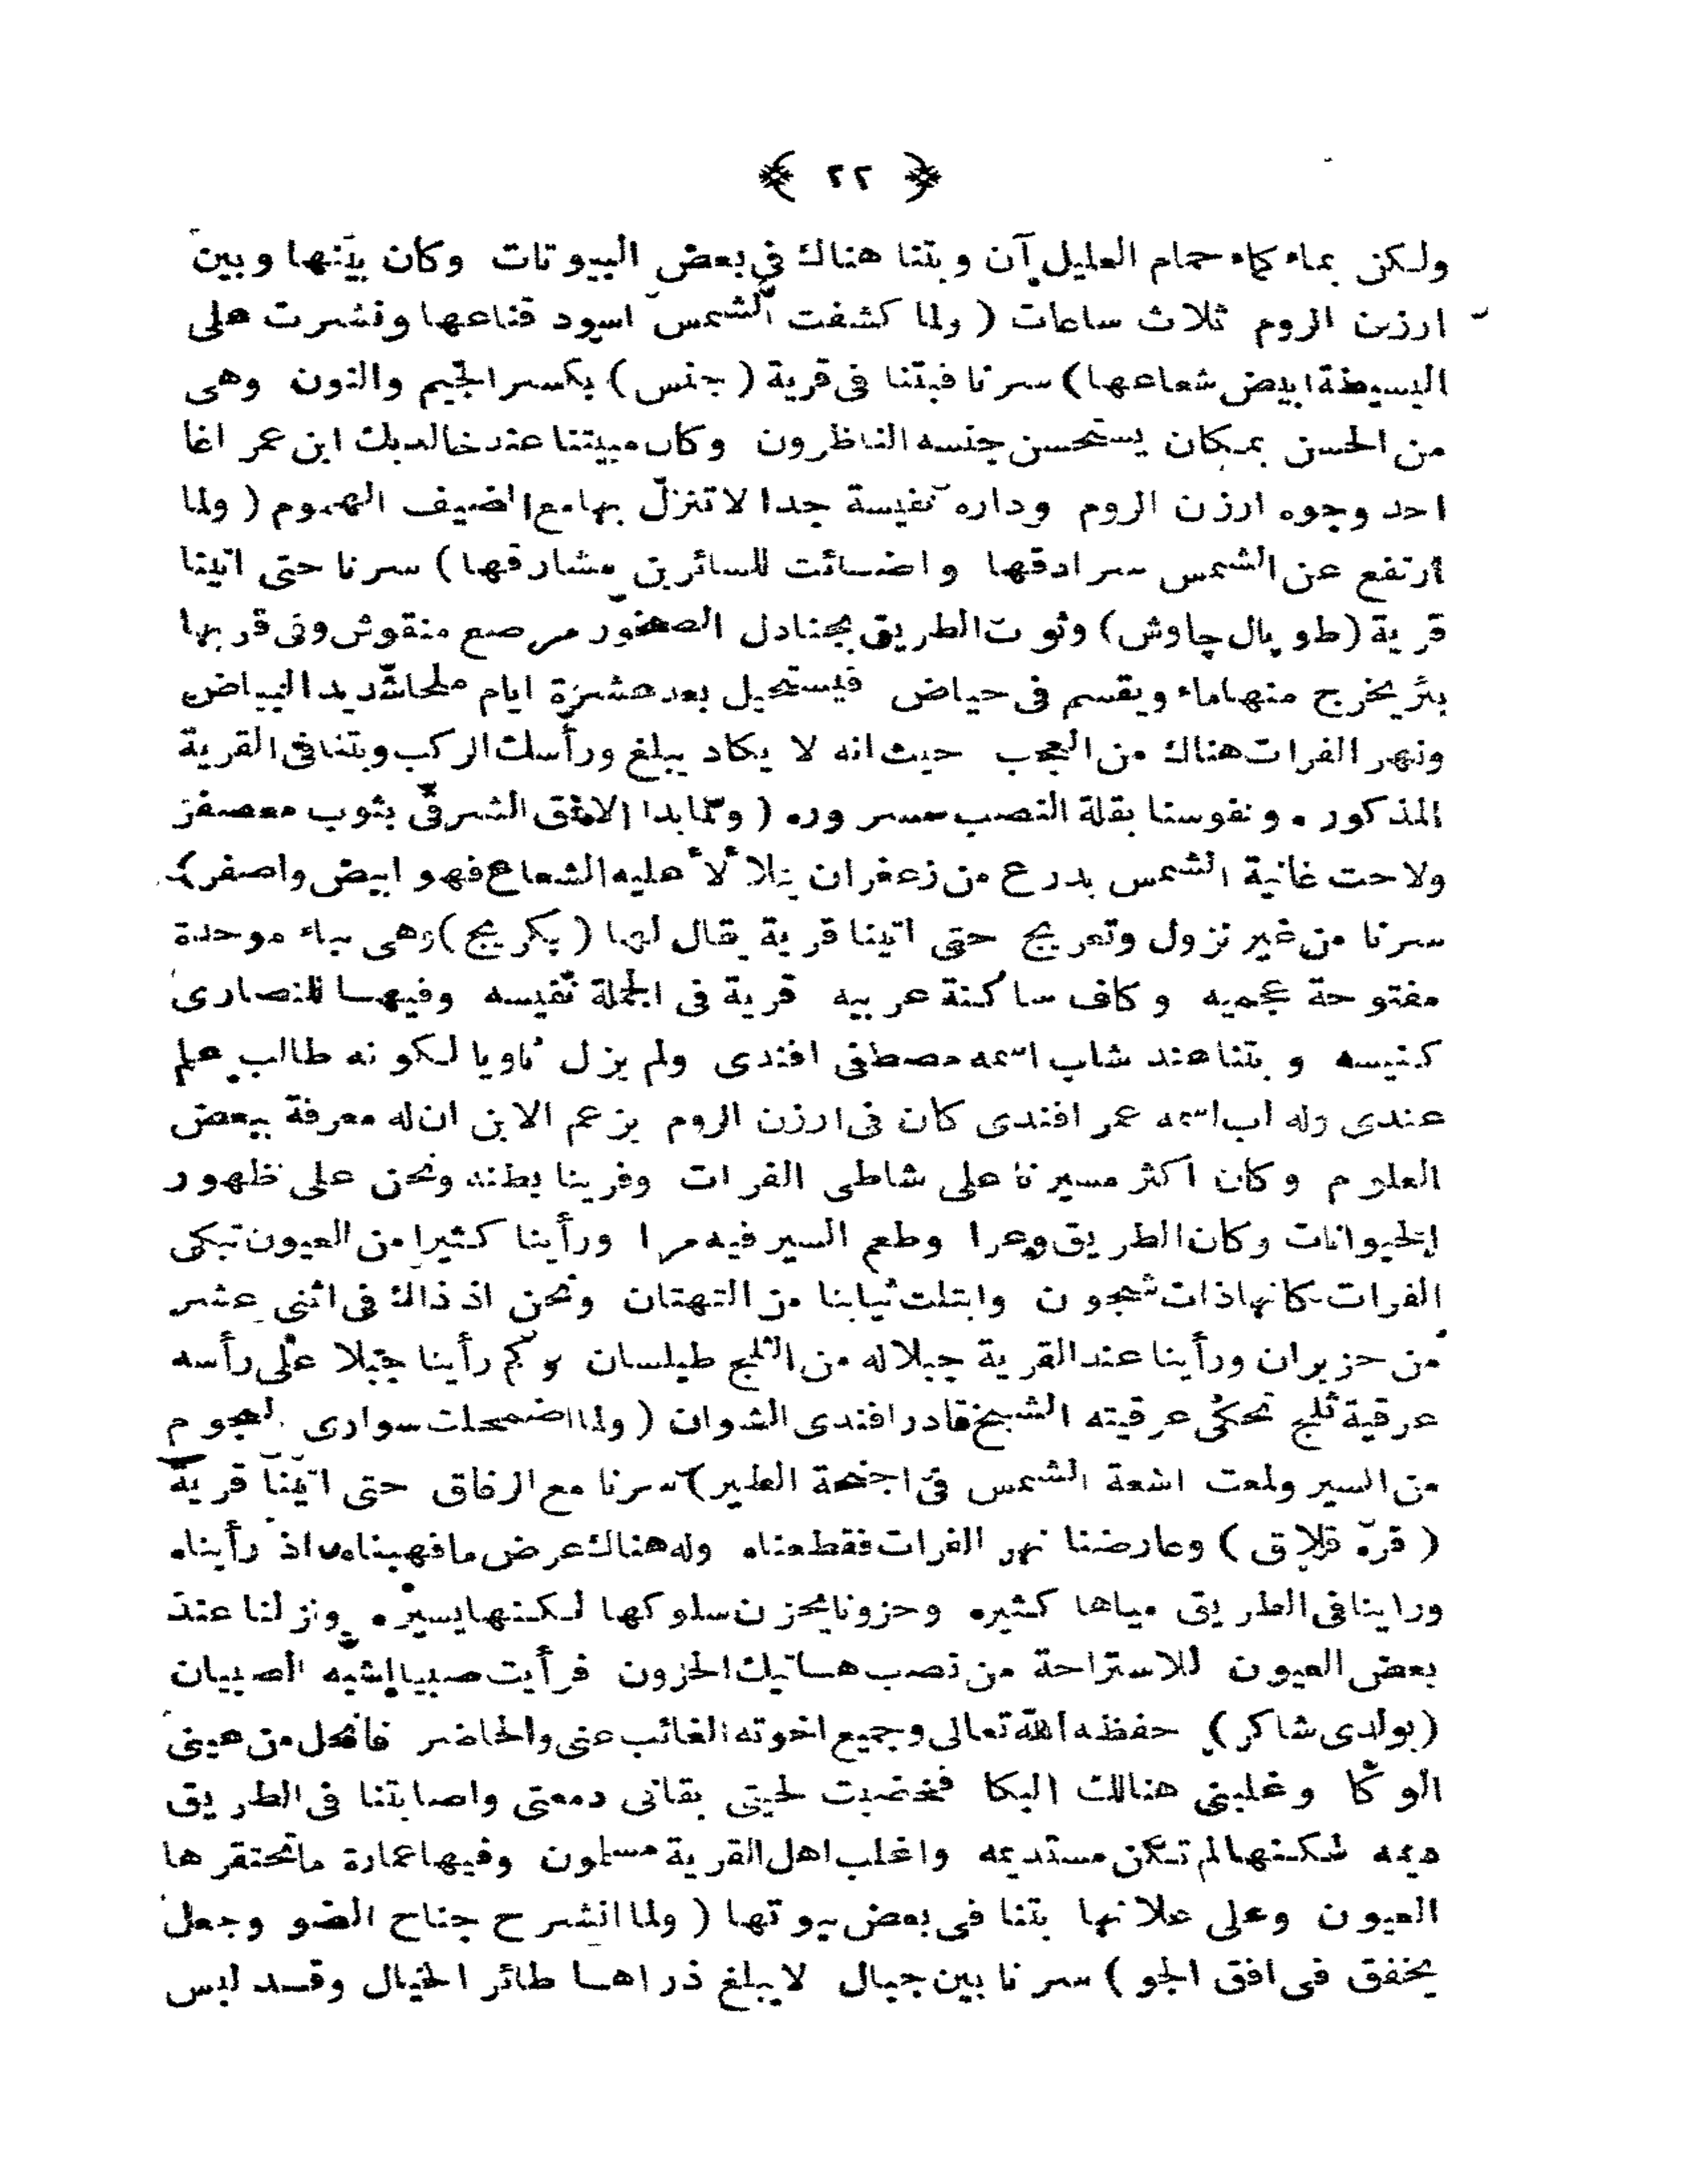 ﴿ ٢٢ ﴾
ولكن بماء كماء حمام العليل آن وبتنا هناك في بعض البيوتات وكان بينها وبين
ارزن الروم ثلاث ساعات ( ولما كشفت الشمس اسود قناعها ونشرت على
البسيطة ابيض شعاعها ) سرنا فبتنا فى قرية ( جنس ) بكسر الجيم والنون وهى
من الحسن بمكان يستحسن جنسه الناظرون وكان مبيتنا عند خالد بك ابن عمر اغا
احد وجوه ارزن الروم وداره نفيسة جدا لا تنزل بها مع الضيف الهموم ( ولما
ارتفع عن الشمس سرادقها واضائت للسائرين مشارقها ) سرنا حتى اتينا
قرية ( طوپال چاوش ) وثوب الطريق بجنادل الصخور مرصع منقوش وفى قربها
بئر يخرج منها ماء ويقسم فى حياض فيستحيل بعد عشرة ايام ملحا شديد البياض
ونهر الفرات هناك من العجب حيث انه لا يكاد يبلغ ورأسك الركب وبتنا فى القرية
المذكوره ونفوسنا بقلة النصب مسروره ( ولما بدا الافق الشرقى بثوب معصفر
ولاحت غانية الشمس بدرع من زعفران يتلألأ عليه الشعاع فهو ابيض واصفر )
سرنا من غير نزول وتعريج حتى اتينا قرية يقال لها ( پكريج ) وهى بباء موحدة
مفتوحة عجميه وكاف ساكنة عربيه قرية فى الجملة نفيسه وفيها للنصارى
كنيسه وبتنا عند شاب اسمه مصطفى افندى ولم يزل ثاويا لكونه طالب علم
عندى وله اب اسمه عمر افندى كان فى ارزن الروم يزعم الابن ان له معرفة ببعض
العلوم وكان اكثر مسيرنا على شاطى الفرات وفرينا بطنه ونحن على ظهور
الحيوانات وكان الطريق وعرا وطعم السير فيه مرا ورأينا كثيرا من العيون تبكى
الفرات كانها ذات شجون وابتلت ثيابنا من التهتان ونحن اذ ذاك فى اثنى عشر
من حزيران ورأينا عند القرية جبلا له من الثلج طيلسان وكم رأينا جبلا على رأسه
عرقية ثلج تحكى عرقيته الشيخ قادر افندى الشوان ( ولما اضمحلت سوارى النجوم
من السير ولمعت اشعة الشمس فى اجنحة الطير ) سرنا مع الرفاق حتى اتينا قرية
( قره قلاق ) وعارضنا نهر الفرات فقطعناه وله هناك عرض ما فهبناه اذ رأيناه
وراينا فى الطريق مياها كثيره وحزونا يحزن سلوكها لكنها يسيره ونزلنا عند
بعض العيون للاستراحة من نصب هاتيك الحزون فرأيت صبيا اشبه الصبيان
( بولدى شاكر ) حفظه الله تعالى وجميع اخوته الغائب عنى والحاضر فانحل من عينى
الوكا وغلبنى هنالك البكا فخضبت لحيتى بقانى دمعتى واصابتنا فى الطريق
ديمه لكنها لم تكن مستديمه واغلب اهل القرية مسلمون وفيها عمارة ما تحتقرها
العيون وعلى علاتها بتنا فى بعض بيوتها ( ولما انشرح جناح الضو وجعل
يخفق فى افق الجو ) سرنا بين جبال لا يبلغ ذراها طائر الخيال وقد لبس